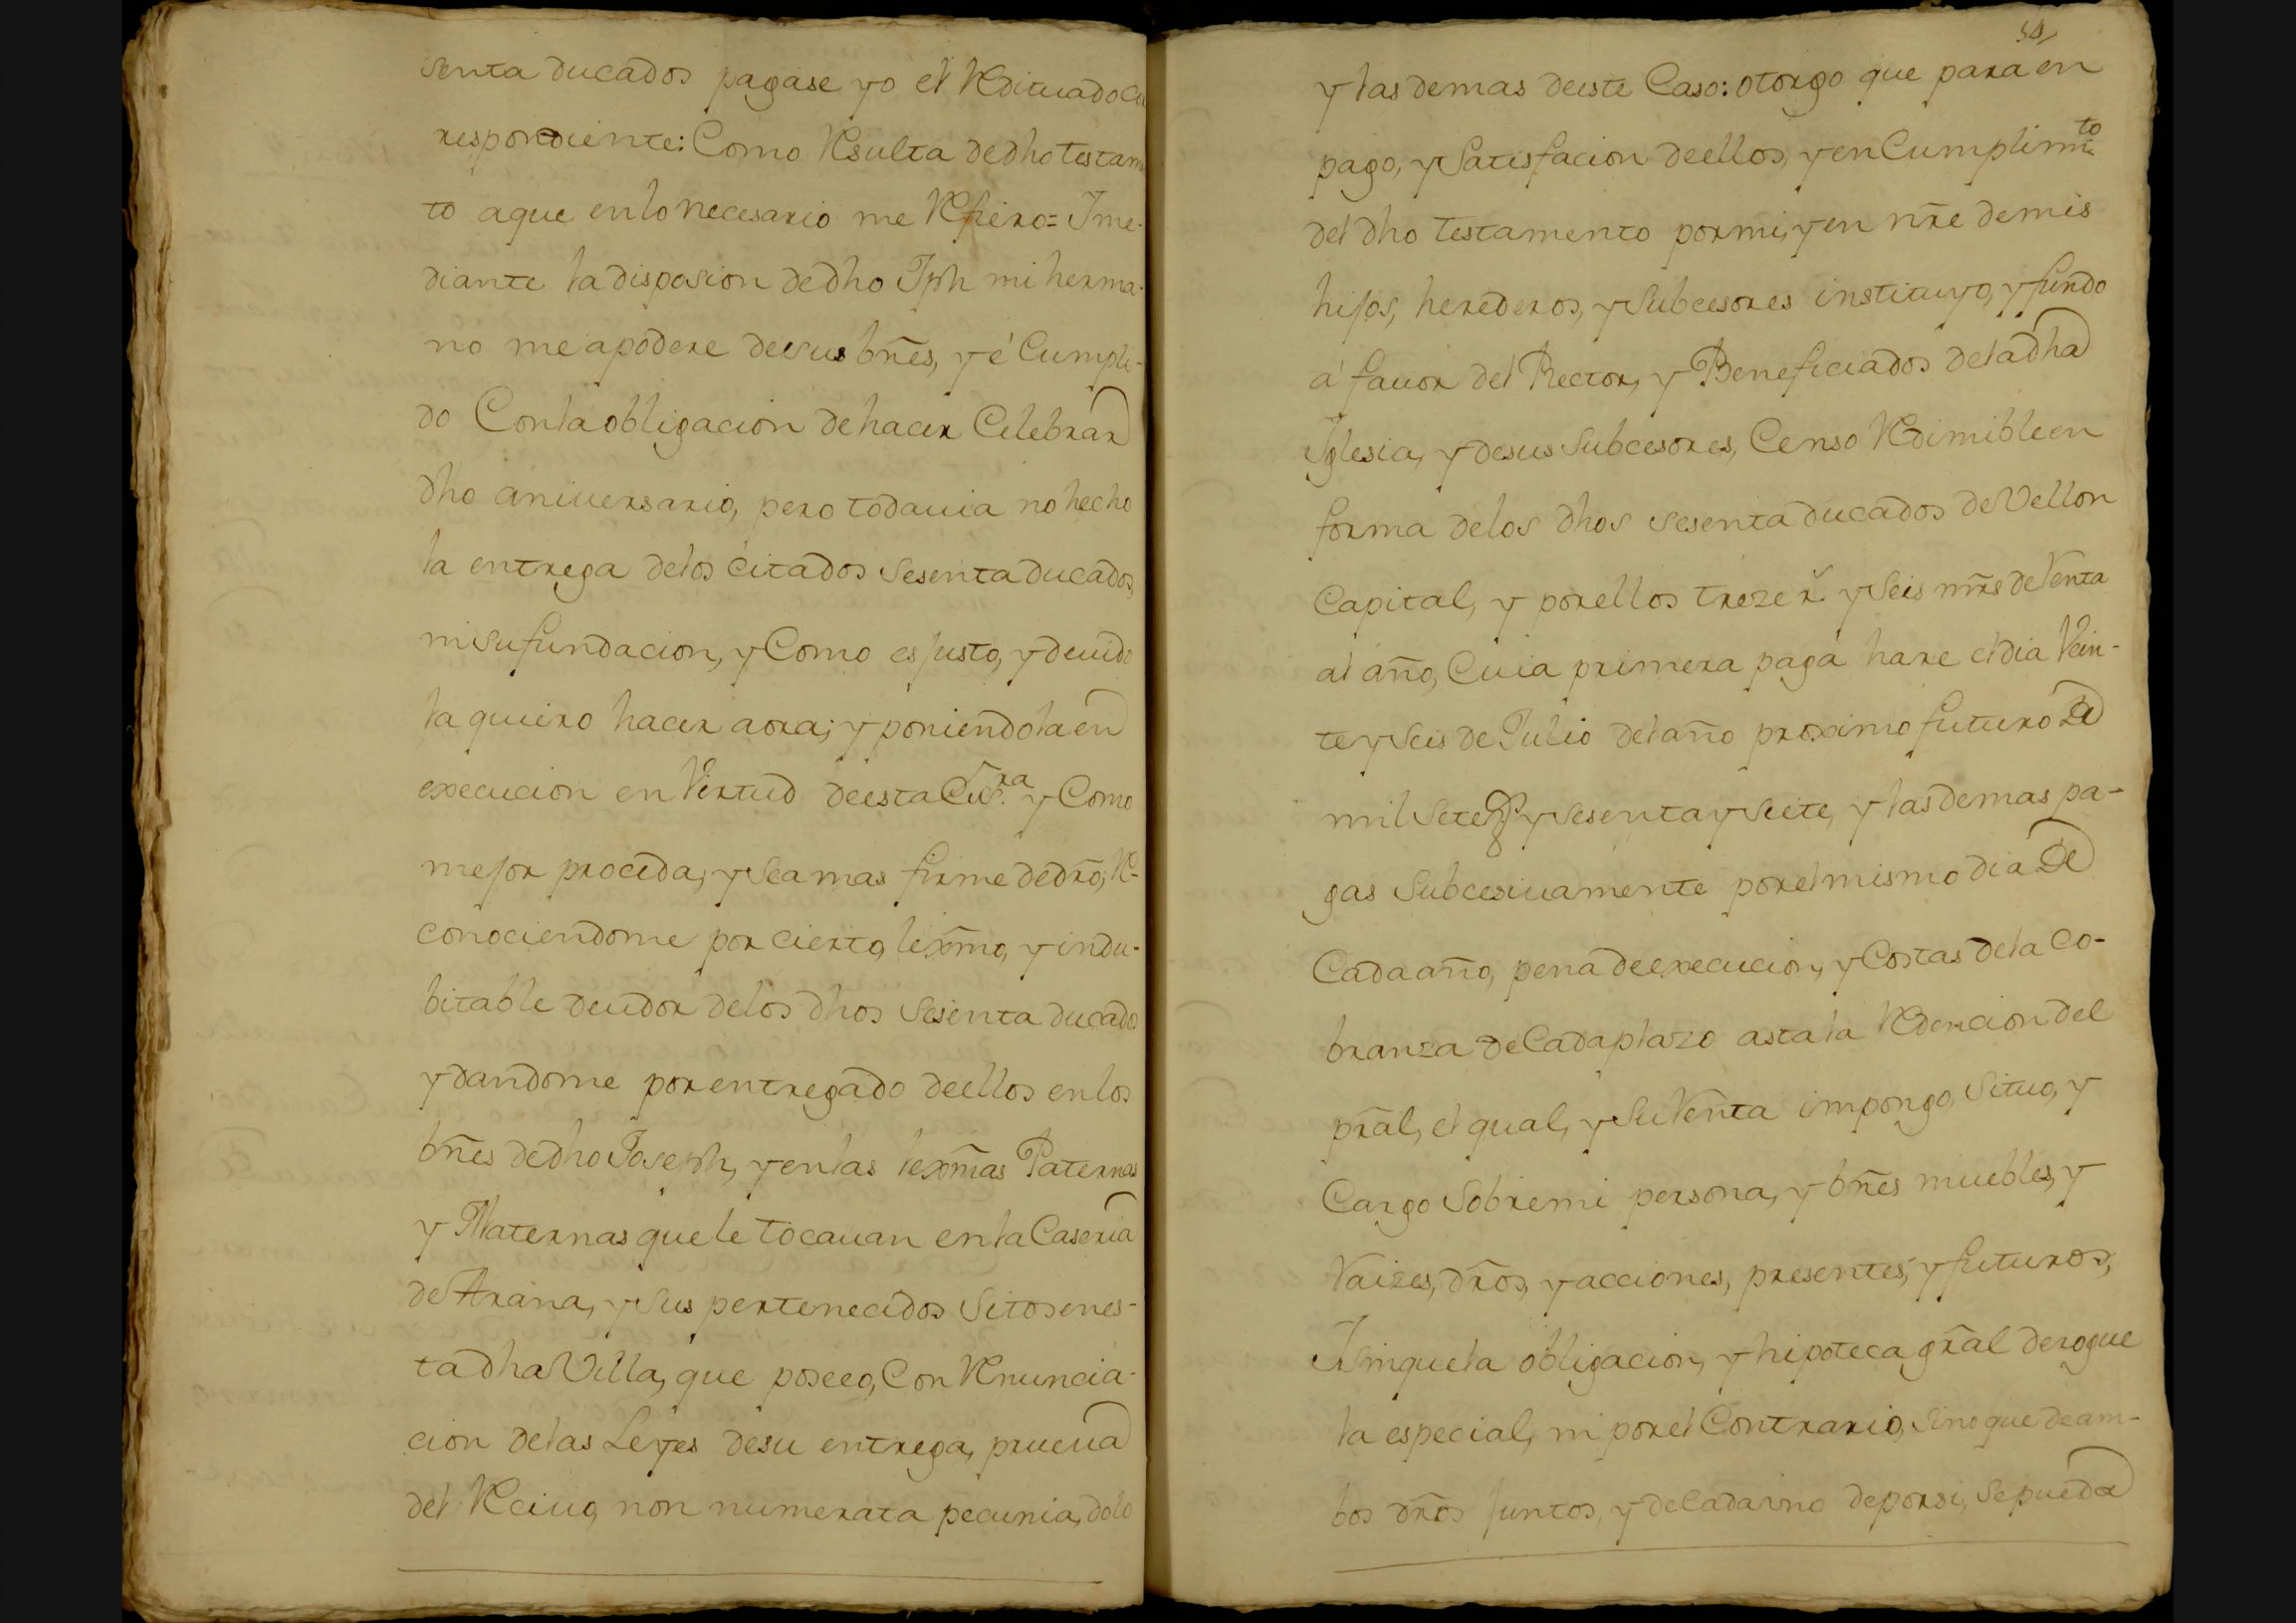 senta ducados pagase yo el Redituado co
rrespondiente: Como Resulta de dho testam
to aque en lo necesario me Refiero= I me-
diante la disposion de dho Jph mi herma-
no me apodere de sus bñes, y é Cumpli-
do Con la obligacion de hacer Celebrar
dho aniuersario, pero todauia no hecho
la entrega de los citados sesenta ducados,
ni su fundacion, y Como es justo, y deuido
la quiero hacer aora; y poniendola en
execucion en Virtud de esta Esra y Como
mejor proceda, y sea mas firme de dro, Re-
conociendome por cierto, lexmo, y indu-
bitable deudor de los dhos sesenta ducado
y dandome por entregado de ellos en los
bñes de dho Joseph, y en las lexmas Paternas
y Maternas que le tocauan en la Caseria
de Arana, y sus pertenecidos sitos en es-
ta dha Villa, que poseeo, Con Renuncia-
cion de las Leyes de su entrega, prueua
del Reciuo, non numerata pecunia, dolo
54
y las demas de este Caso: otorgo que para en
pago, y Satisfacion de ellos, y en Cumplimto
del dho testamento por mi, y en nre de mis
hijos, herederos, y Subcesores instituyo, y fundo
á fauor del Rector, y Beneficiados de la dha
Iglesia, y de sus Subcesores, Censo Redimible en
forma de los dhos sesenta ducados de Vellon
Capital, y por ellos treze rs y Seis mrs de Renta
al año, Cuia primera paga hare el dia Vein-
te y Seis de Julio del año proximo futuro de
mil Setezs y sesenta y Siete, y las demas pa-
gas Subcesiuamente por el mismo dia de
Cada año, pena de execucion, y Costas de la Co-
branza de Cada plazo asta la Redencion del
pral, el qual, y Su Renta impongo, Situo, y
Cargo Sobre mi persona, y bñes muebles, y
Raizes, dros, y acciones, presentes, y futuros,
Sin que la obligacion, y hipoteca gral derogue
la especial, ni por el Contrario, Sino que de am-
bos dros juntos, y de Cada uno de por si, Se pueda